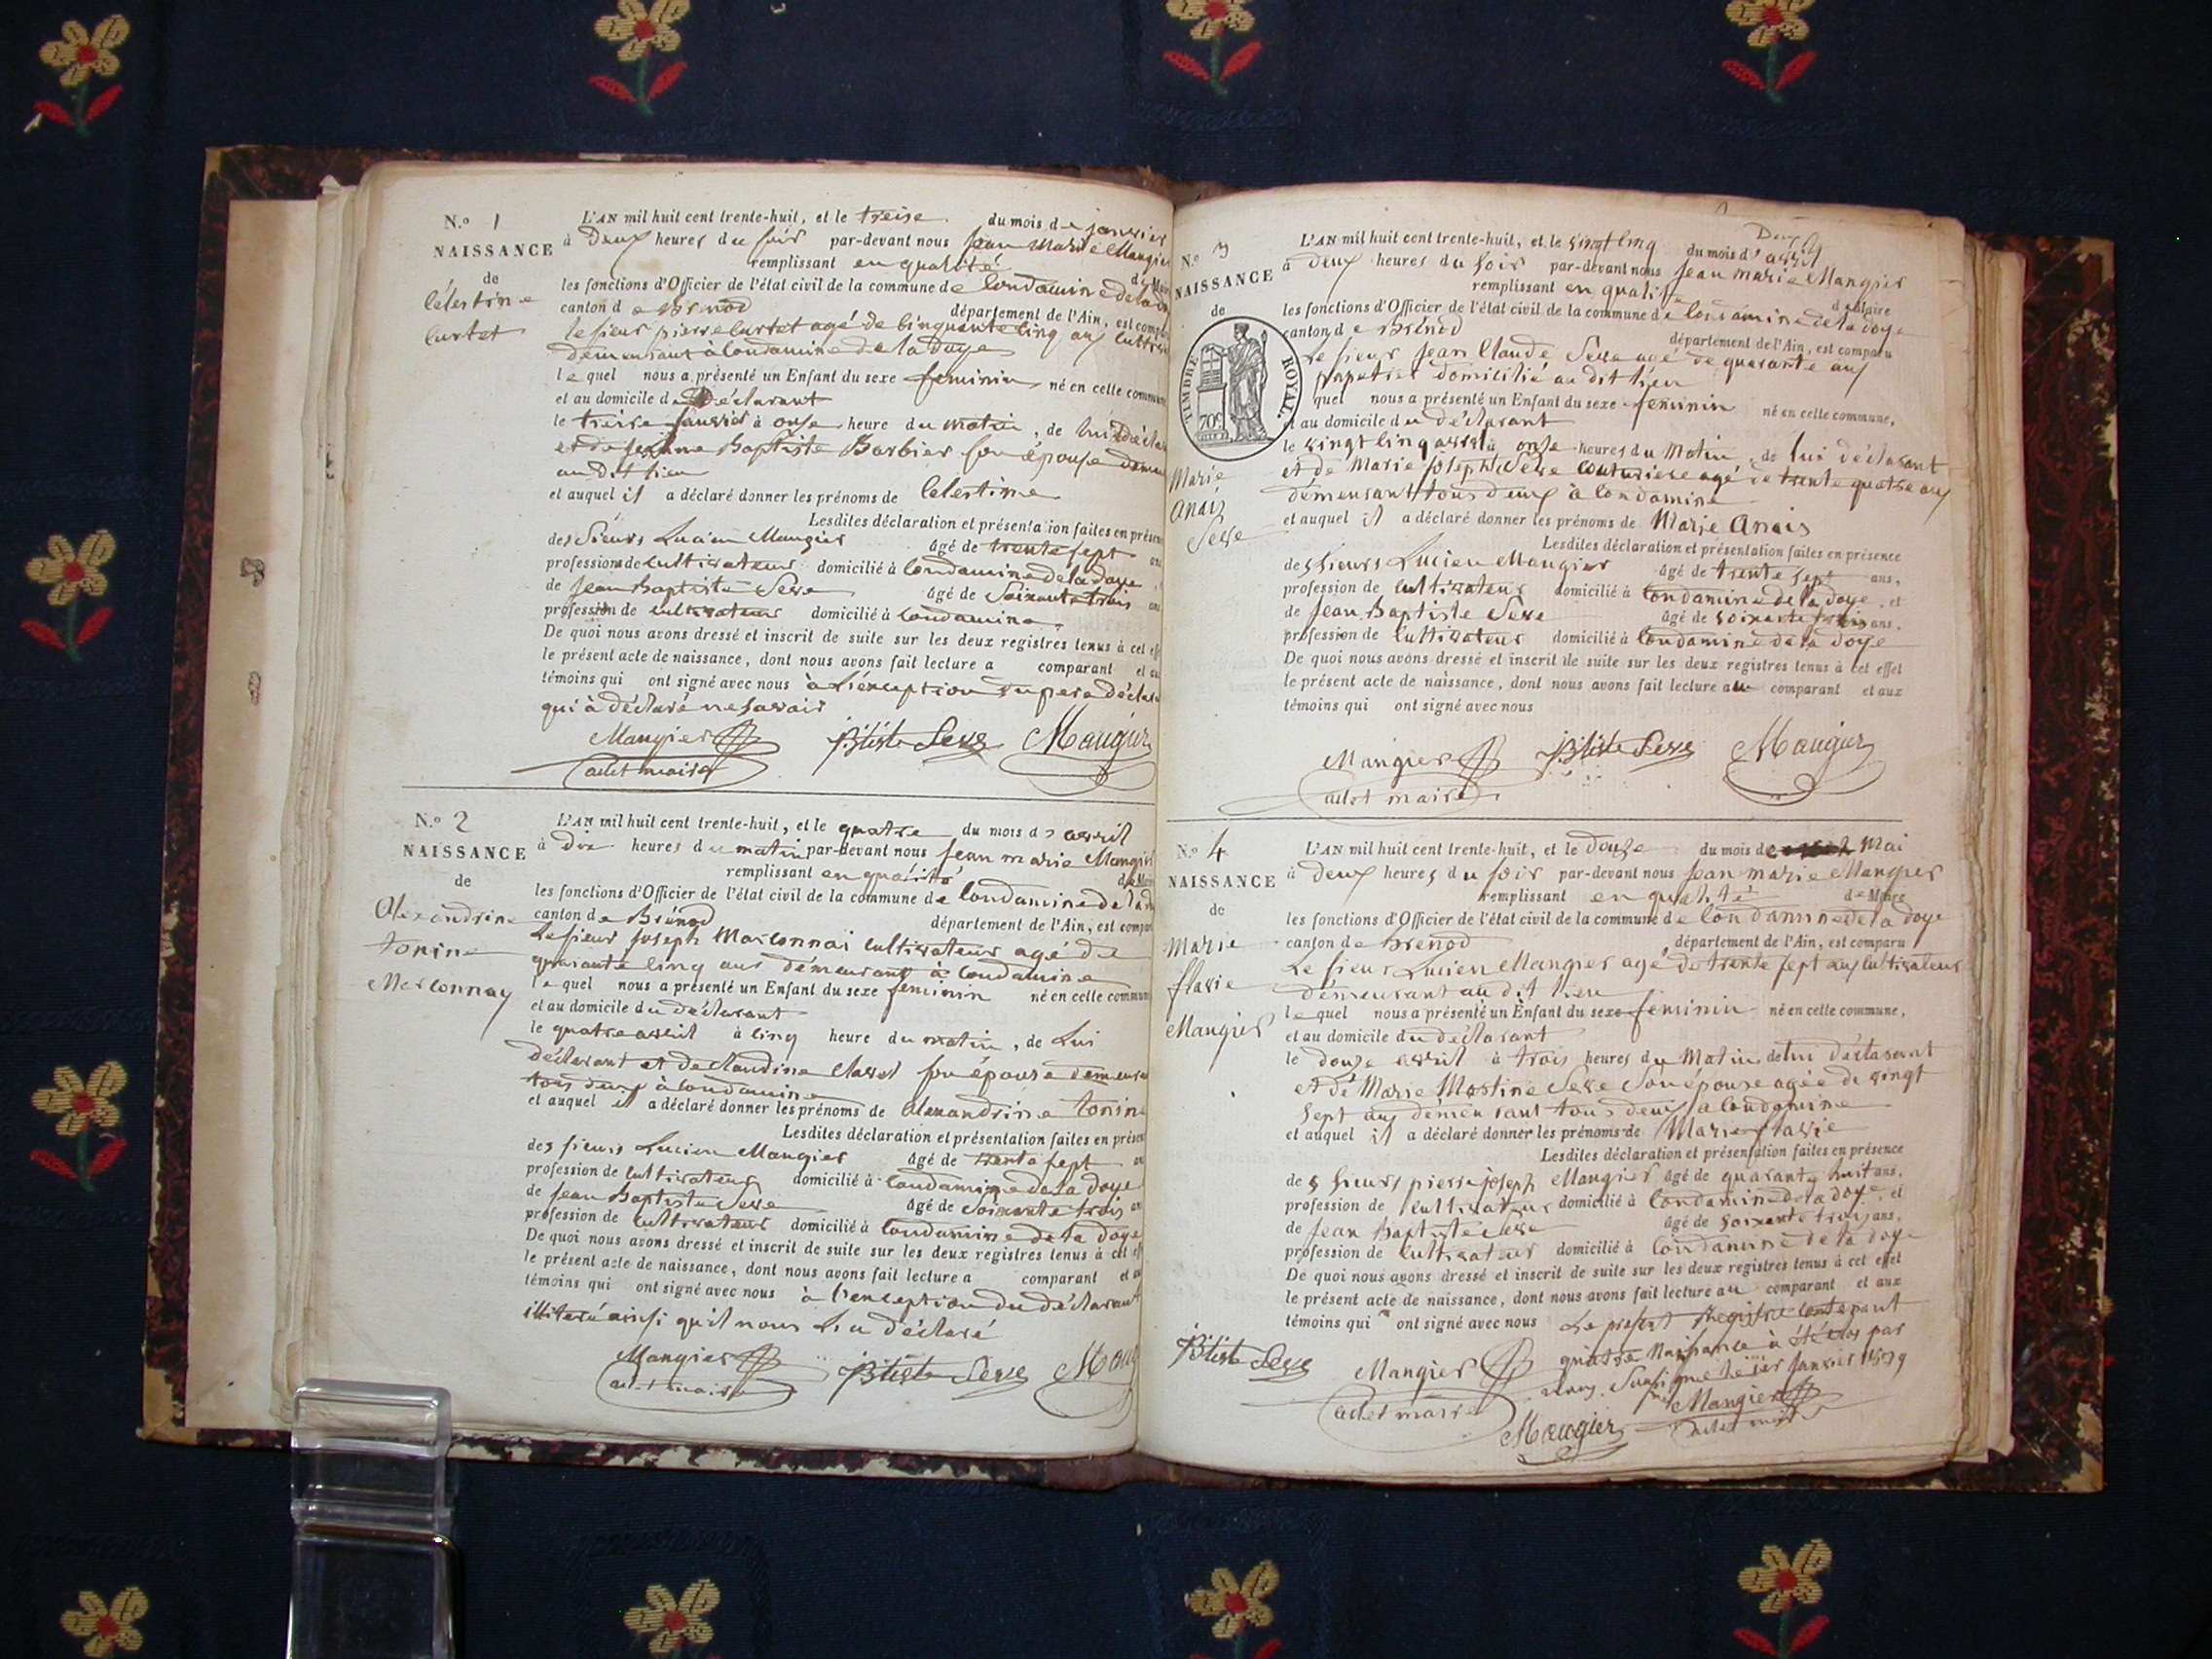 N.o 1
NAISSANCE
de
Célestine
Curtet
L'AN mil huit cent trente-huit, et le treise du mois de janvier
à Deux heures du soir par-devant nous Jean Marie Mangier
remplissant en qualité de Maire
les fonctions d'Officier de l'état civil de la commune de Condamine de la
canton de Brenod département de l'Ain, est comparu
le sieur pierre Curtet agé de Cinquante Cinq ans
demeurant à Condamine de la Doye
lequel nous a présenté un Enfant du sexe feminin né en cette commune
et au domicile du Déclarant
le treise janvier à onse heure du matin, de lui
et de Baptiste Barbier son épouse
au dit lieu
et auquel il a déclaré donner les prénoms de Celestine
Lesdites déclaration et présentation faites en présence
des Sieurs Lucien Mangier âgé de trente sept ans
profession de Cultivateur domicilié à Condamine de la Doye
de Jean Baptiste Seve âgé de Soixante trois ans
profession de Cultivateur domicilié à Condamine
De quoi nous avons dressé et inscrit de suite sur les deux registres tenus à cet eff
le présent acte de naissance, dont nous avons fait lecture a comparant et au
témoins qui ont signé avec nous à l'exception du pere
qui à déclaré ne savoir
Mangier Btiste Seve Maugier
adet maire
N.o 2
NAISSANCE
de
Alexandrine
tonine
Marconnay
L'AN mil huit cent trente-huit, et le quatre du mois d avril
à Dix heures du matin par-devant nous Jean marie Mangier
remplissant en qualité de Maire
les fonctions d'Officier de l'état civil de la commune de Condamine de la
canton de Brénod département de l'Ain, est comparu
Le sieur Joseph Marconnai Cultivateur agé de
quarante Cinq ans démeurant à Condamine
lequel nous a présenté un Enfant du sexe feminin né en cette commune
et au domicile du déclarant
le quatre avril à Cinq heure du matin, de Lui
déclarant et de Claudine Clavel son épouse
tous deux à Condamine
et auquel il a déclaré donner les prénoms de Alexandrine tonine
Lesdites déclaration et présentation faites en présen
des sieurs Lucien Mangier âgé de trente sept an
profession de Cultivateur domicilié à Condamine de la Doye
de Jean Baptiste Seve âgé de Soixante trois an
profession de Cultivateur domicilié à Condamine de la Doye
De quoi nous avons dressé et inscrit de suite sur les deux registres tenus à cet eff
le présent acte de naissance, dont nous avons fait lecture a comparant et au
témoins qui ont signé avec nous à l'exception du déclarant
illiteré ainsi qu'il nous L'a déclaré
Mangier Btiste Seve Maug
adet maire
Deux
N.o 3
NAISSANCE
de
TIMBRE ROYAL.
70c
Marie
Anaiz
Seve
L'AN mil huit cent trente-huit, et le vingt Cinq du mois d'avril
à deux heures du soir par-devant nous Jean marie Mangier
remplissant en qualité de Maire
les fonctions d'Officier de l'état civil de la commune de Condamine de la doye
canton de Brénod département de l'Ain, est comparu
le sieur Jean Claude Seve agé de quarante ans
papetier domicilié au dit lieu
quel nous a présenté un Enfant du sexe feminin né en cette commune,
et au domicile du déclarant
le vingt Cinq avril à onse heures du Matin, de lui déclarant
et de Marie Joseph Seve couturiere agé de trente quatre ans
démeurant tous deux à Condamine
et auquel il a déclaré donner les prénoms de Marie Anais
Lesdites déclaration et présentation faites en présence
des sieurs Lucien Mangier âgé de trente sept ans,
profession de Cultivateur domicilié à Condamine de la doye, et
de Jean Baptiste Seve âgé de soixante trois ans,
profession de Cultivateur domicilié à Condamine de la doye
De quoi nous avons dressé et inscrit de suite sur les deux registres tenus à cet effet
le présent acte de naissance, dont nous avons fait lecture au comparant et aux
témoins qui ont signé avec nous
Mangier Btiste Seve Maugier
adet maire
N.o 4
NAISSANCE
de
Marie
flavie
Mangier
L'AN mil huit cent trente-huit, et le Douze du mois de Mai
à deux heures du soir par-devant nous Jean marie Mangier
remplissant en qualité de Maire
les fonctions d'Officier de l'état civil de la commune de Condamine de la doye
canton de Brenod département de l'Ain, est comparu
Le sieur Lucien Mangier agé de trente sept ans Cultivateur
démeurant au dit lieu
lequel nous a présenté un Enfant du sexe feminin né en cette commune,
et au domicile du déclarant
le douze avril à trois heures du Matin de lui déclarant
et de Marie Martine Seve son épouse agée de vingt
sept ans démeurant tous deux à Condamine
et auquel il a déclaré donner les prénoms de Marie flavie
Lesdites déclaration et présentation faites en présence
des sieurs pierre joseph Mangier âgé de quarante huit ans,
profession de Cultivateur domicilié à Condamine de la doye, et
de Jean Baptiste Seve âgé de soixante trois ans,
profession de Cultivateur domicilié à Condamine de la doye
De quoi nous avons dressé et inscrit de suite sur les deux registres tenus à cet effet
le présent acte de naissance, dont nous avons fait lecture au comparant et aux
témoins qui ont signé avec nous Le présent Registre contenant
quatre Naissance à été clos par
nous soussigné le 1er Janvier 1839
Btiste Seve Mangier Mangier
adet maire Maugier adet maire